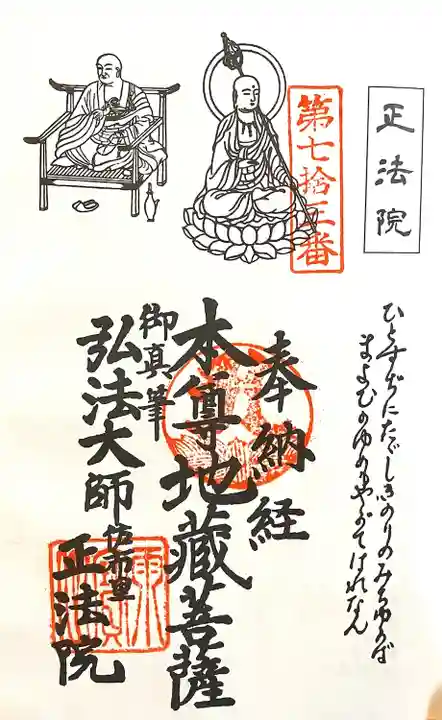 正法院
第七拾三番
ひとすぢにたゞしきのりのみちゆかば
まよひのゆめのやがてはれなん
奉納経
本尊地蔵菩薩
御真筆
弘法大師
佐布里
正法院